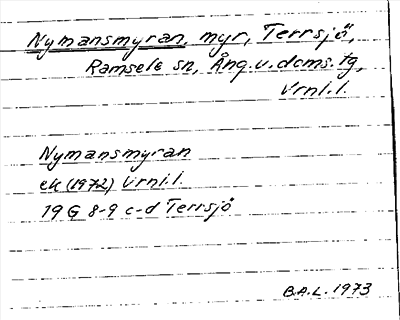 Nymansmyran, myr, Terrsjö,
Ramsele sn, Ång.v.doms.tg,
Vrnl.l.
Nymansmyran
ek (1972) Vrnl.l.
19 G 8-9 c-d Terrsjö
B.A.L. 1973